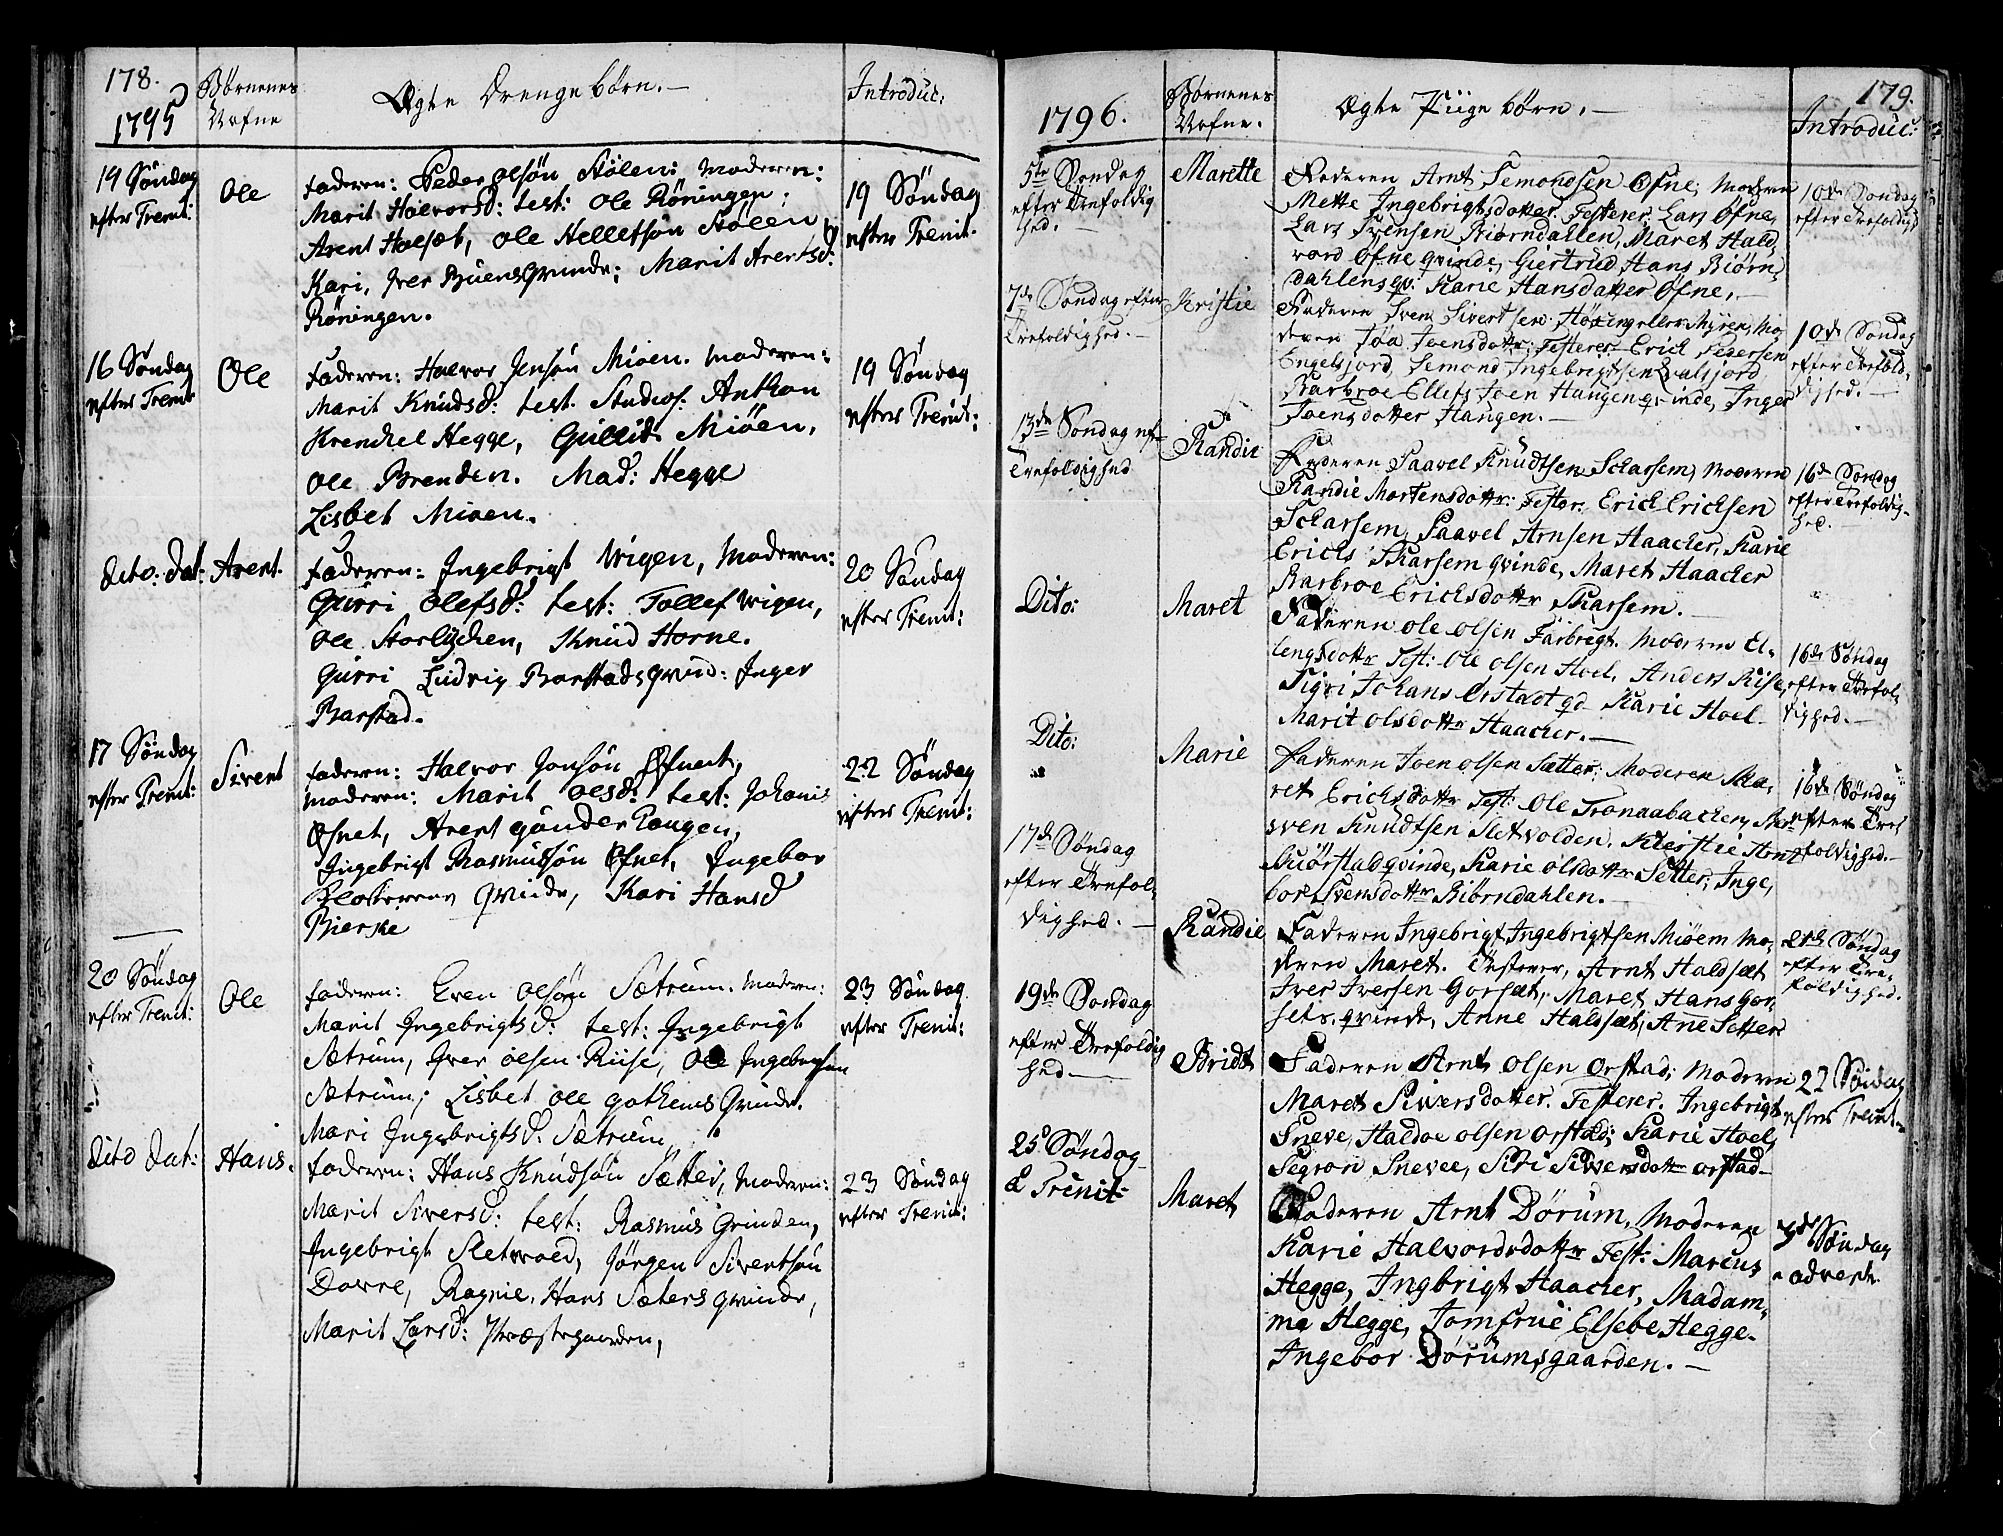 178.
1795
Børnenes
Nafne
Ægte Drengebørn. —
Introduc:
19 Søndag
efter Trenit:
Ole
faderen: Peder Olsøn Stølen; Moderen:
Marit Halvorsd: test: Ole Röningen;
Arent Halsæt, Ole Helletsøn Stølen
Kari, Iver Buens Qvinde; Marit Arentsd:
Röningen.
19 Søndag
efter Trenit.
16 Søndag
efter Trenit
Ole
faderen: Halvor Jensøn Mioen. Moderen:
Marit Knudsd: test. Studios: Anthon
Krenckel Hegge, Gullid Miöen,
Ole Brenden. Mad: Hegge
Lisbet Mioen.
19 Søndag
efter Trenit:
dito: dat:
Arent.
faderen: Ingebrigt Wigen, Moderen:
Gurri Olefsd: test: Tollef Wigen,
Ole Storlÿcken, Knud Horne.
Gurri Ludvig Barstads Qvind: Inger
Barstad.
20 Søndag
efter Trenit:
17 Søndag
efter Trenit:
Sivert
faderen: Halvor Jonsøn Øfnet,
Moderen: Marit Olsd: test: Johanis
Øfnet, Arent Gunder Haugen,
Ingebrigt Rasmusøn Øfnet, Ingebor
Qvinde, Kari Hansd
Bierske
22 Søndag
efter Trenit:
20 Søndag
efter Trenit:
Ole
faderen: Even Olsøn Sætrum. Moderen:
Marit Ingebrigtsd: test: Ingebrigt
Sætrum, Iver Olsen Riise, Ole Ingebrigtsen
Sætrum; Lisbet Ole Gothems Qvinde.
Mari Ingebrigtsd: Sætrum,
23 Søndag
efter Trenit:
dito dat:
Hans.
faderen: Hans Knudsøn Sætter, Moderen:
Marit Siversd: test: Rasmus Grinden,
Ingebrigt Sletwold, Jörgen Sivertsøn
Dovre, Ragnie, Hans Sæters Qvinde,
Marit Larsd: Præstegaarden,
23 Søndag
efter Trenit:
179.
1796.
Børnenes
Nafne.
Ægte Piigebørn. —
Introduc:
5te Søndag
efter Trefoldig
hed. —
Marette
Faderen Arnt Semondsen Øfne; Moderen
Mette Ingebrigtsdotter. Festerer. Lars Øfne,
Lars Svensen Biørndahlen, Maret Hald
vord Øfne qvinde, Giertrud Hans Biørn,
dahlens qv: Karie Hansdatter Øfne, —
10de Søndag
efter Trefoldigh
7de Søndag efter
Trefoldighed. —
Kristie
Faderen Sven Sivertsen Høxeng eller Myren, Mo
deren Jøa Joensdottr; Festerer Erick Pedersen
Engelsjord, Semond Ingebrigtsen Qvalsjord
Barbroe Ellefs Joen Haugen qvinde, Inger
Joensdotter Haugen. —
10de Søndag
efter Trefold,
dighed. —
13de Søndag ef-
Trefoldighed
Randie
Faderen Paavel Knudtsen Scharsem, Moderen
Randie Mortensdottr: Fester. Erick Ericksen
Scharsem, Paavel Arnsen Haacker, Karie
Ericks Skarsem qvinde, Maret Haacker
Barbroe Ericksdottr Skarsem. —
16de Søndag
efter Trefoldig-
hed.
Dito:
Maret
Faderen Ole Olsen Farbregt. Moderen El-
lengsdottr Fest: Ole Olsen Hoel, Anders Riise,
Sigri Johans Erstadt qd Karie Hoel
Marit Olsdottr Haacker. —
16de Søndag
efter Trefol-
dighed. —
Dito:
Marie
Faderen Joen Olsen Sætter; Moderen Ma-
ret Ericksdottr Fest: Ole Tronaabacken,
Sven Knudtsen Sletvolden, Kierstie Arnt
Skiørstad qvinde, Karie Olsdottr Setter, Inge,
bor Svensdottr Biørndahlen. —
16de Søndag
efter Tref
foldighed. —
17de Søndag
efter Trefol-
dighed. —
Randie
Faderen Ingebrigt Ingebrigtsen Miöem Mo-
deren Maret. Festerer, Arnt Haldsæt
Iver Iversen Gorsæt, Maret Hans Gor-
sets qvinde, Anne Haldsæt, Ane Setter
21de Søndag
efter Tre-
foldighed.
19de Søndag
efter Trefoldig
hed —
Bridt
Faderen Arnt Olsen Orstad; Moderen
Maret Siversdotter. Festerer. Ingebrigt
Sneve, Haldoe Olsen Orstad; Karie Hoel,
Segron Snevee, Siri Siversdottr Orstad-
22 Søndag
efter Trenit.
25de Søndag
e Trenit:
Maret
Faderen Arnt Dørum, Moderen
Karie Halvordsdottr Fest: Marcus
Hegge, Ingbrigt Haacker, Madam-
ma Hegge, Jomfrue Elsebe Hegge-
Ingebor Dørumsgaarden. —
3de Søndag
advent